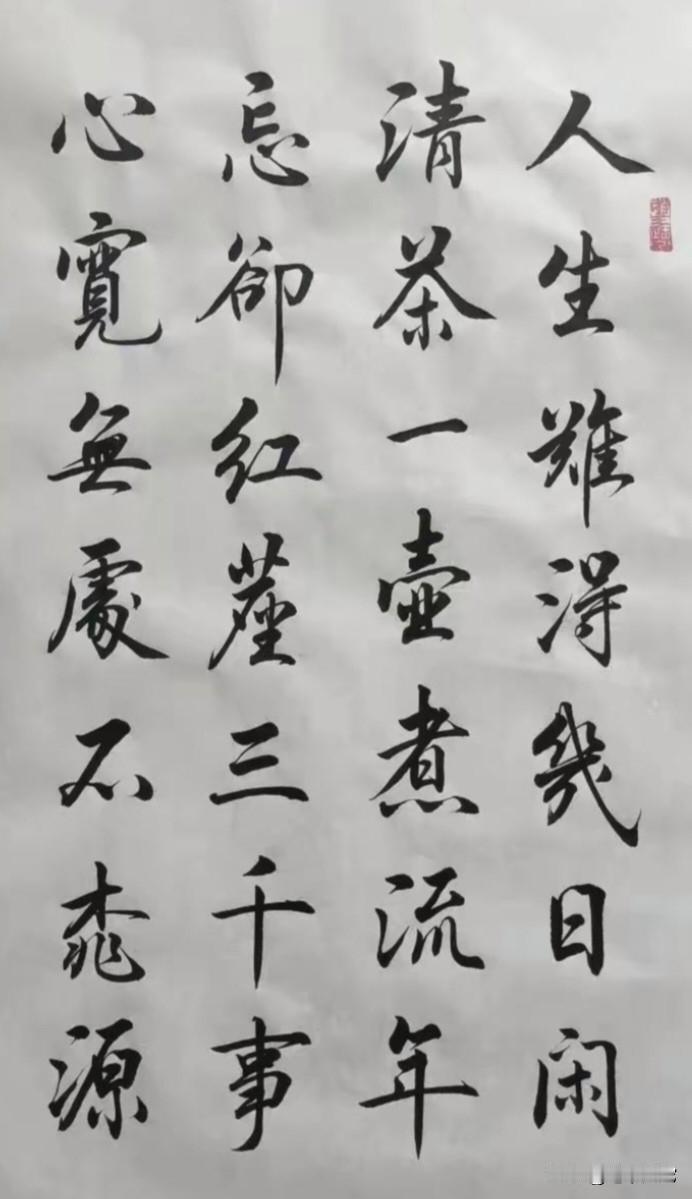 人生難得幾日闲
清茶一壺煮流年
忘卻红塵三千事
心寬無處不桃源